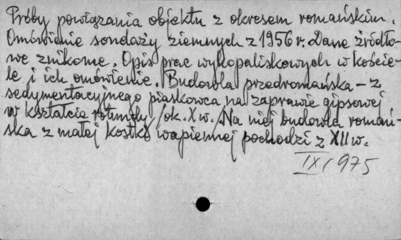 Próby powiązania objektu z okresem romańskim.
Omówienie sondaży ziemnych z 1956 r. Dane źródło-
we znikome. Opis prac wykopaliskowych w kościele
le i ich omówienie. Budowla przedromańska – z
sedymentacyjnego piaskowca na zaprawie gipsowej
w kształcie rotundy /ok. X w. Na niej budowla romań-
ska z małej kostki wapiennej pochodzi z XII w.
IX 1975